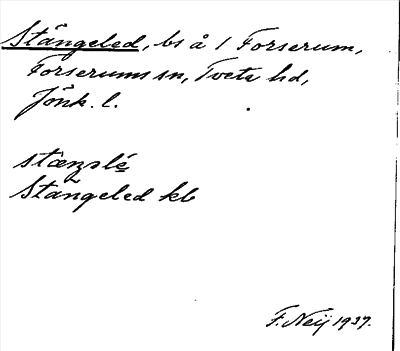 Stångeled, bs å 1 Forserum,
Forserums sn, Tveta hd,
Jönk. l.
stæŋəlé
Stångeled kb
F. Neij 1937.